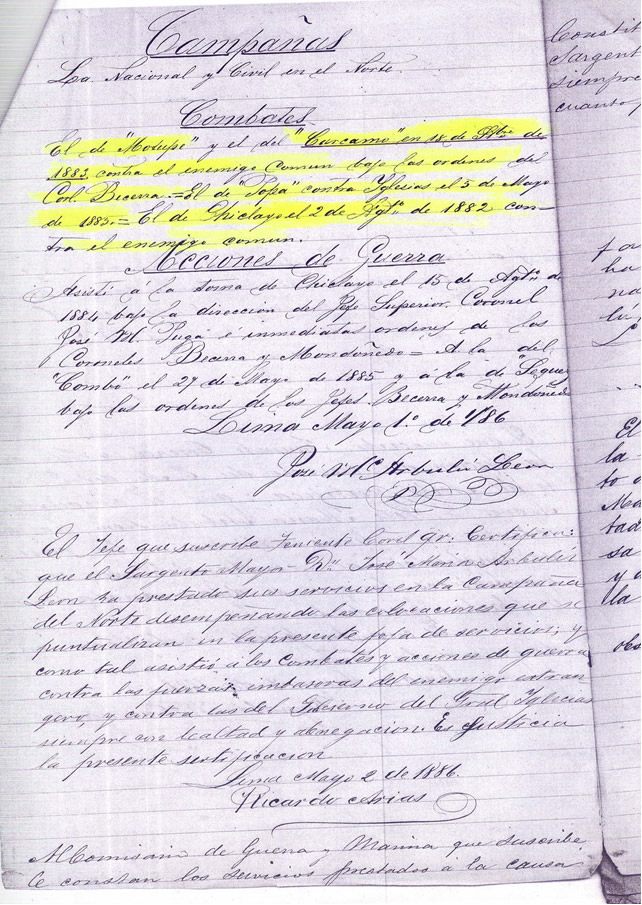 Campañas
La Nacional y Civil en el Norte.
Combates
El de "Motupe" y el del "Carcamo" en 18 de de
1883 contra el enemigo comun bajo las ordenes del
Corl. Becerra.=El de "Popa" contra Yglesias el 5 de Mayo
de 1885.= El de Chiclayo el 2 de Agto. de 1882 con-
tra el enemigo comun.
Acciones de Guerra
Asistí á la toma de Chiclayo el 15 de Agto. de
1884 bajo la direccion del Jefe Superior, Coronel
José M. Puga é inmediatas ordenes de los
Coroneles Becerra y Mondoñedo= A la del
"Combo" el 27 de Mayo de 1885 y a la de
bajo las ordenes de los Jefes Becerra y Mondoñedo
Lima Mayo 1º de 1/86
José Ma Arbulú Leon
El Jefe que suscribe Teniente Corl. gr: Certifica:
que el Sargento Mayor Dn. José Maria Arbulú
Leon ha prestado sus servicios en la Campaña
del Norte desempeñando las colocaciones que se
puntualizan en la presente foja de servicios; y
como tal asistió á los Combates y acciones de guerra
contra las fuerzas imbasoras del enemigo extran
gero, y contra las del Govierno del Gral Yglesias
siempre con lealtad y abnegacion. Es Justicia
la presente sertificacion
Lima Mayo 2 de 1886.
Ricardo Arias
Al Comisario de Guerra y Marina que suscribe,
le constan los servicios prestados á la causa
Constit
Sargent
siempre
cuanto
por
ha
na
la
El
la
to
Ma
tad
sa
y
la